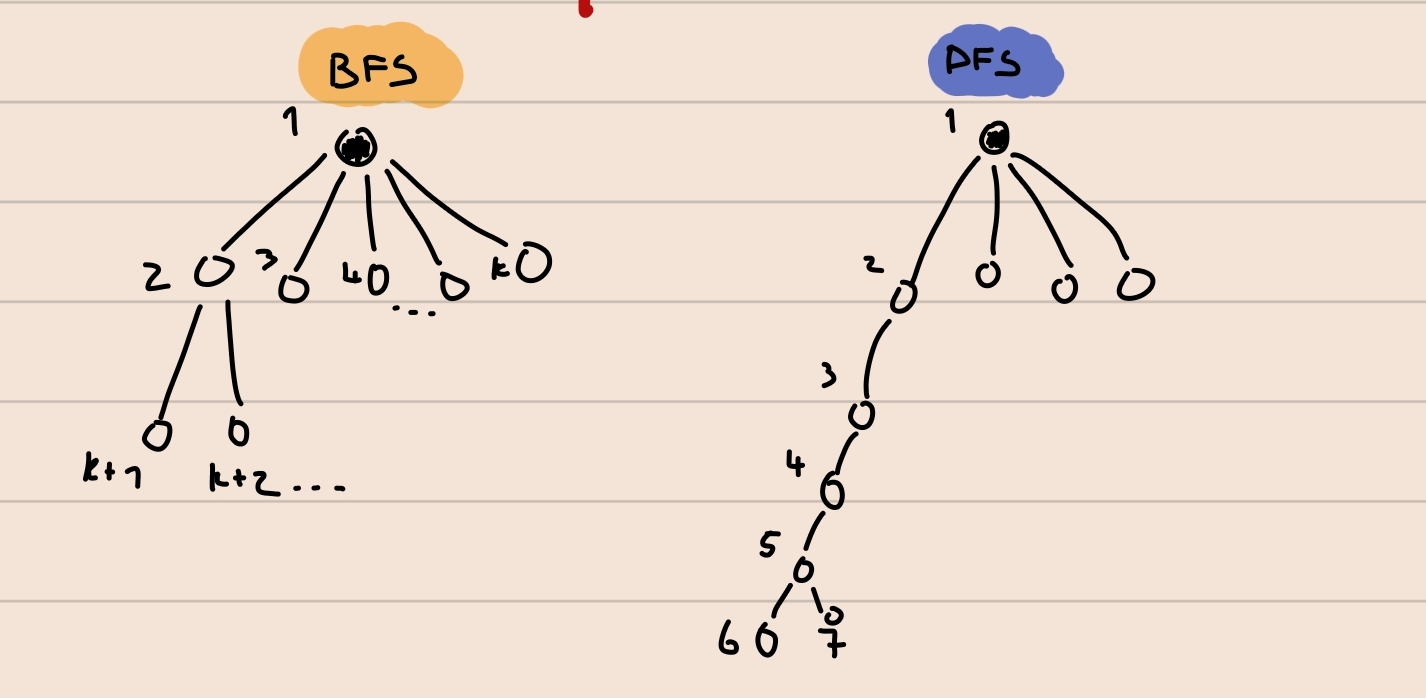 BFS
1
2 3 4 .... k
k+1 k+2 ....
DFS
1
2
3
4
5
6 7